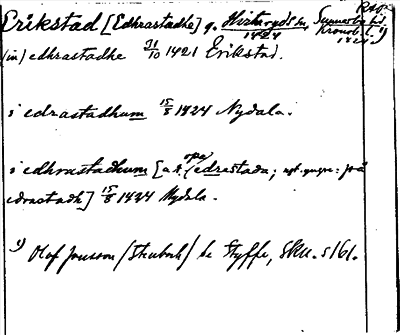 Erikstad [Edhrastadhe] g. Hwitaryds sn, Sunnerbo hd.
1424
Kronob. l. 1)
1424.
(in) edhrastadhe 31/10 1421 Erikstad.
i edrastadhum 15/8 1424 Nydala.
i edhrastadhum [a.t.
edrastada;
edrastadh] 15/8 1424 Nydala.
1) Olof Jonsson /Stubork/ be Styffe, SKU. s 161.